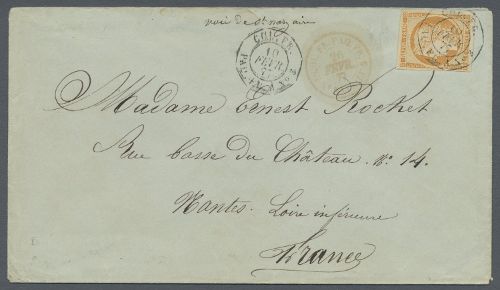 voie de st nazaire
10
FEVR.
Madame Ernest Rochet
Rue basse du Château. No. 14.
Nantes. Loire inférieure
France